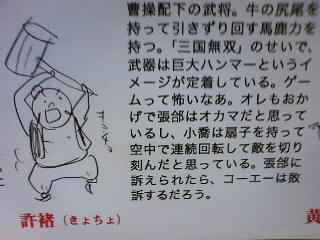 曹操配下の武将。牛の尻尾を
持って引きずり回す馬鹿力を
持つ。「三国無双」のせいで、
武器は巨大ハンマーというイ
メージが定着している。ゲー
ムって怖いなあ。オレもおか
げで張郃はオカマだと思って
いるし、小喬は扇子を持って
空中で連続回転して敵を切り
刻んだと思っている。張郃に
訴えられたら、コーエーは敗
訴するだろう。
許褚（きょちょ）
黄